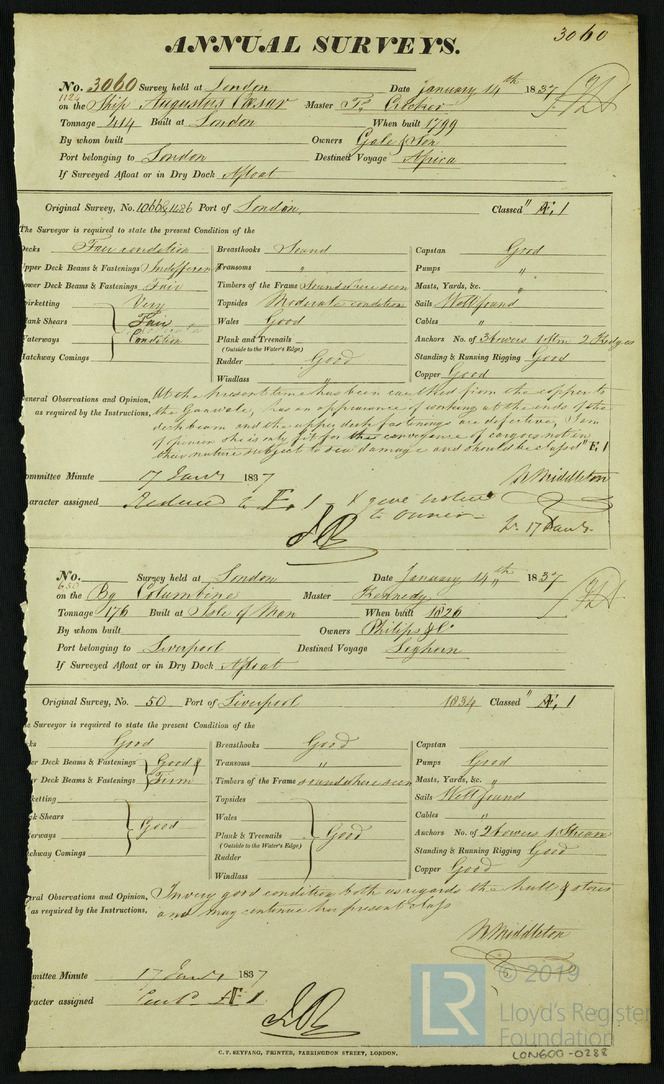 3060
ANNUAL SURVEYS.
No. 3060 Survey held at London Date January 14th 1837
1124
on the Ship Augustus Cæsar Master
Tonnage 414 Built at London When built 1799
By whom built Owners Gale & Son
Port belonging to London Destined Voyage Africa
If Surveyed Afloat or in Dry Dock Afloat
Original Survey, No. 1066 & 1126 Port of London Classed " Æ 1
The Surveyor is required to state the present Condition of the
Decks Fair condition Breasthooks Sound Capstan Good
Upper Deck Beams & Fastenings Indifferent Transoms " Pumps "
Lower Deck Beams & Fastenings Fair Timbers of the Frame Sound where seen Masts, Yards, &c. "
Spirketting Very Topsides Moderate condition Sails Well found
Plank Shears Fair Wales Good Cables "
Waterways Condition Plank and Treenails Anchors No. of 3 bowers 1 Stm 2 Kedges
(Outside to the Water's Edge) Standing & Running Rigging Good
Hatchway Comings Rudder Good
Windlass " Copper Good
General Observations and Opinion, At the present time has been caulked from the copper to
as required by the Instructions, the Gunwale, has an appearance of working at the ends of the
deck beam and the upper deck fastenings are defective, I am
of opinion she is only fit for the conveyance of cargoes not in
their nature subject to sea damage and should be classed "E 1
Committee Minute 17 Jany 1837 W Middleton
Character assigned Reduced to E. 1 - & give notice
to owner -
17 Jany
No. Survey held at London Date January 14th 1837
650
on the Bg Columbine Master Kennedy
Tonnage 176 Built at Isle of Man When built 1826
By whom built Owners Philips & Co
Port belonging to Liverpool Destined Voyage Leghorn
If Surveyed Afloat or in Dry Dock Afloat
Original Survey, No. 50 Port of Liverpool 1834 Classed " Æ 1
The Surveyor is required to state the present Condition of the
Good Breasthooks Good Capstan
Deck Beams & Fastenings Good & Transoms " Pumps Good
Deck Beams & Fastenings Firm Timbers of the Frame sound where seen Masts, Yards, &c. "
Topsides Sails Well found
Shears Wales Cables "
Good Plank & Treenails Good Anchors No. of 2 bowers 1 Stream
(Outside to the Water's Edge) Standing & Running Rigging Good
Comings Rudder
Windlass Copper Good
General Observations and Opinion, In very good condition both as regards the hull & stores
as required by the Instructions, and may continue her present class
W Middleton
Committee Minute 17 Jany 1837
Character assigned Contd Æ 1
LR
© 2019
Lloyd's Register
Foundation
LON600-0288
C. F. SEYFANG, PRINTER, FARRINGDON STREET, LONDON.